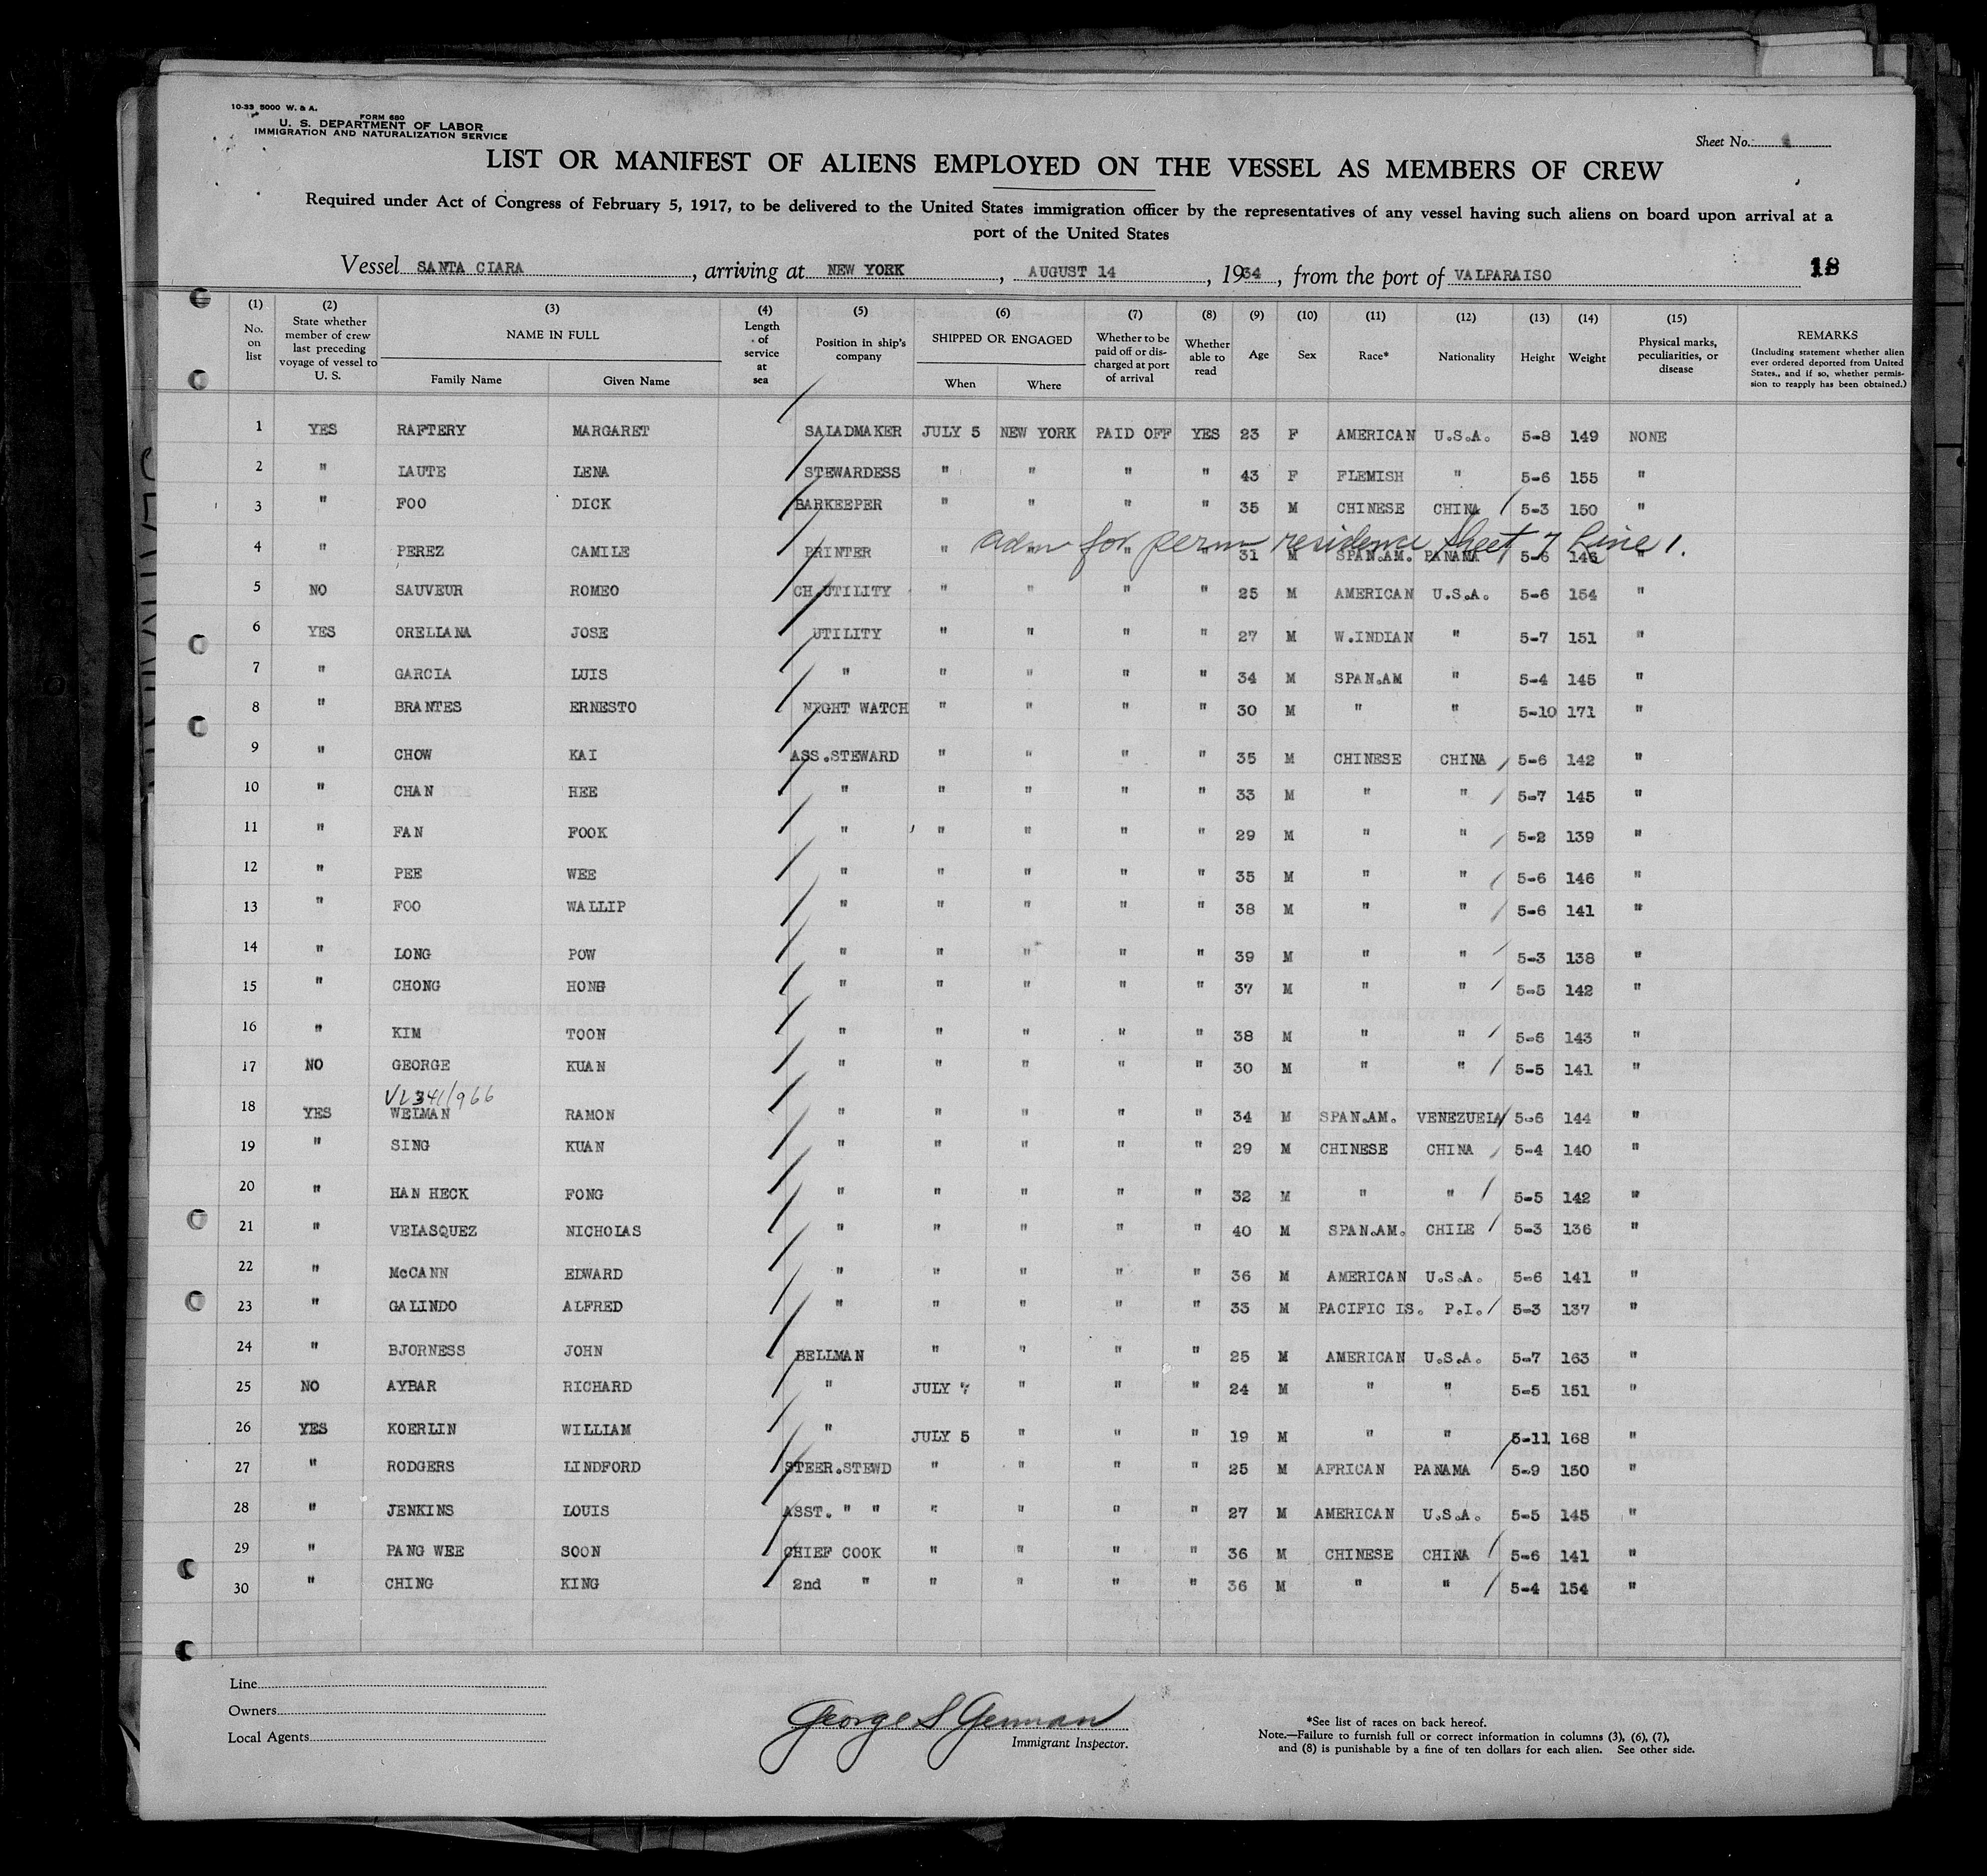 10-33 5000 W. & A.
FORM 680
U. S. DEPARTMENT OF LABOR
IMMIGRATION AND NATURALIZATION SERVICE
Sheet No.
LIST OR MANIFEST OF ALIENS EMPLOYED ON THE VESSEL AS MEMBERS OF CREW
Required under Act of Congress of February 5, 1917, to be delivered to the United States immigration officer by the representatives of any vessel having such aliens on board upon arrival at a
port of the United States
Vessel SANTA CLARA, arriving at NEW YORK, AUGUST 14, 1934, from the port of VALPARAISO 18
(1) No. on list (2) State whether member of crew last preceding voyage of vessel to U. S. (3) NAME IN FULL Family Name Given Name (4) Length of service at sea (5) Position in ship's company (6) SHIPPED OR ENGAGED When Where (7) Whether to be paid off or dis- charged at port of arrival (8) Whether able to read (9) Age (10) Sex (11) Race* (12) Nationality (13) Height (14) Weight (15) Physical marks, peculiarities, or disease REMARKS (Including statement whether alien ever ordered deported from United States., and if so, whether permis- sion to reapply has been obtained.)
1 YES RAFTERY MARGARET SALADMAKER JULY 5 NEW YORK PAID OFF YES 23 F AMERICAN U.S.A. 5-8 149 NONE
2 " LAUTE LENA STEWARDESS " " " " 43 F FLEMISH " 5-6 155 "
3 " FOO DICK BARKEEPER " " " " 35 M CHINESE CHINA 5-3 150 "
adm for perm residence Sheet 7 Line 1.
4 " PEREZ CAMILE PRINTER " " " " 31 M SPAN.AM. PANAMA 5-6 146 "
5 NO SAUVEUR ROMEO CH.UTILITY " " " " 25 M AMERICAN U.S.A. 5-6 154 "
6 YES ORELLANA JOSE UTILITY " " " " 27 M W.INDIAN " 5-7 151 "
7 " GARCIA LUIS " " " " " 34 M SPAN.AM " 5-4 145 "
8 " BRANTES ERNESTO NIGHT WATCH " " " " 30 M " " 5-10 171 "
9 " CHOW KAI ASS.STEWARD " " " " 35 M CHINESE CHINA 5-6 142 "
10 " CHAN HEE " " " " " 33 M " " 5-7 145 "
11 " FAN FOOK " " " " " 29 M " " 5-2 139 "
12 " PEE WEE " " " " " 35 M " " 5-6 146 "
13 " FOO WALLIP " " " " " 38 M " " 5-6 141 "
14 " LONG POW " " " " " 39 M " " 5-3 138 "
15 " CHONG HONG " " " " " 37 M " " 5-5 142 "
16 " KIM TOON " " " " " 38 M " " 5-6 143 "
17 NO GEORGE KUAN " " " " " 30 M " " 5-5 141 "
VL341/966
18 YES WEIMAN RAMON " " " " " 34 M SPAN.AM. VENEZUELA 5-6 144 "
19 " SING KUAN " " " " " 29 M CHINESE CHINA 5-4 140 "
20 " HAN HECK FONG " " " " " 32 M " " 5-5 142 "
21 " VELASQUEZ NICHOLAS " " " " " 40 M SPAN.AM. CHILE 5-3 136 "
22 " McCANN EDWARD " " " " " 36 M AMERICAN U.S.A. 5-6 141 "
23 " GALINDO ALFRED " " " " " 33 M PACIFIC IS. P.I. 5-3 137 "
24 " BJORNESS JOHN BELLMAN " " " " 25 M AMERICAN U.S.A. 5-7 163 "
25 NO AYBAR RICHARD " JULY 7 " " " 24 M " " 5-5 151 "
26 YES KOERLIN WILLIAM " JULY 5 " " " 19 M " " 5-11 168 "
27 " RODGERS LINDFORD STEER.STEWD " " " " 25 M AFRICAN PANAMA 5-9 150 "
28 " JENKINS LOUIS ASST. " " " " " " 27 M AMERICAN U.S.A. 5-5 145 "
29 " PANG WEE SOON CHIEF COOK " " " " 36 M CHINESE CHINA 5-6 141 "
30 " CHING KING 2nd " " " " " 36 M " " 5-4 154 "
Line
Owners
Local Agents
George S German
Immigrant Inspector.
*See list of races on back hereof.
Note.—Failure to furnish full or correct information in columns (3), (6), (7),
and (8) is punishable by a fine of ten dollars for each alien. See other side.